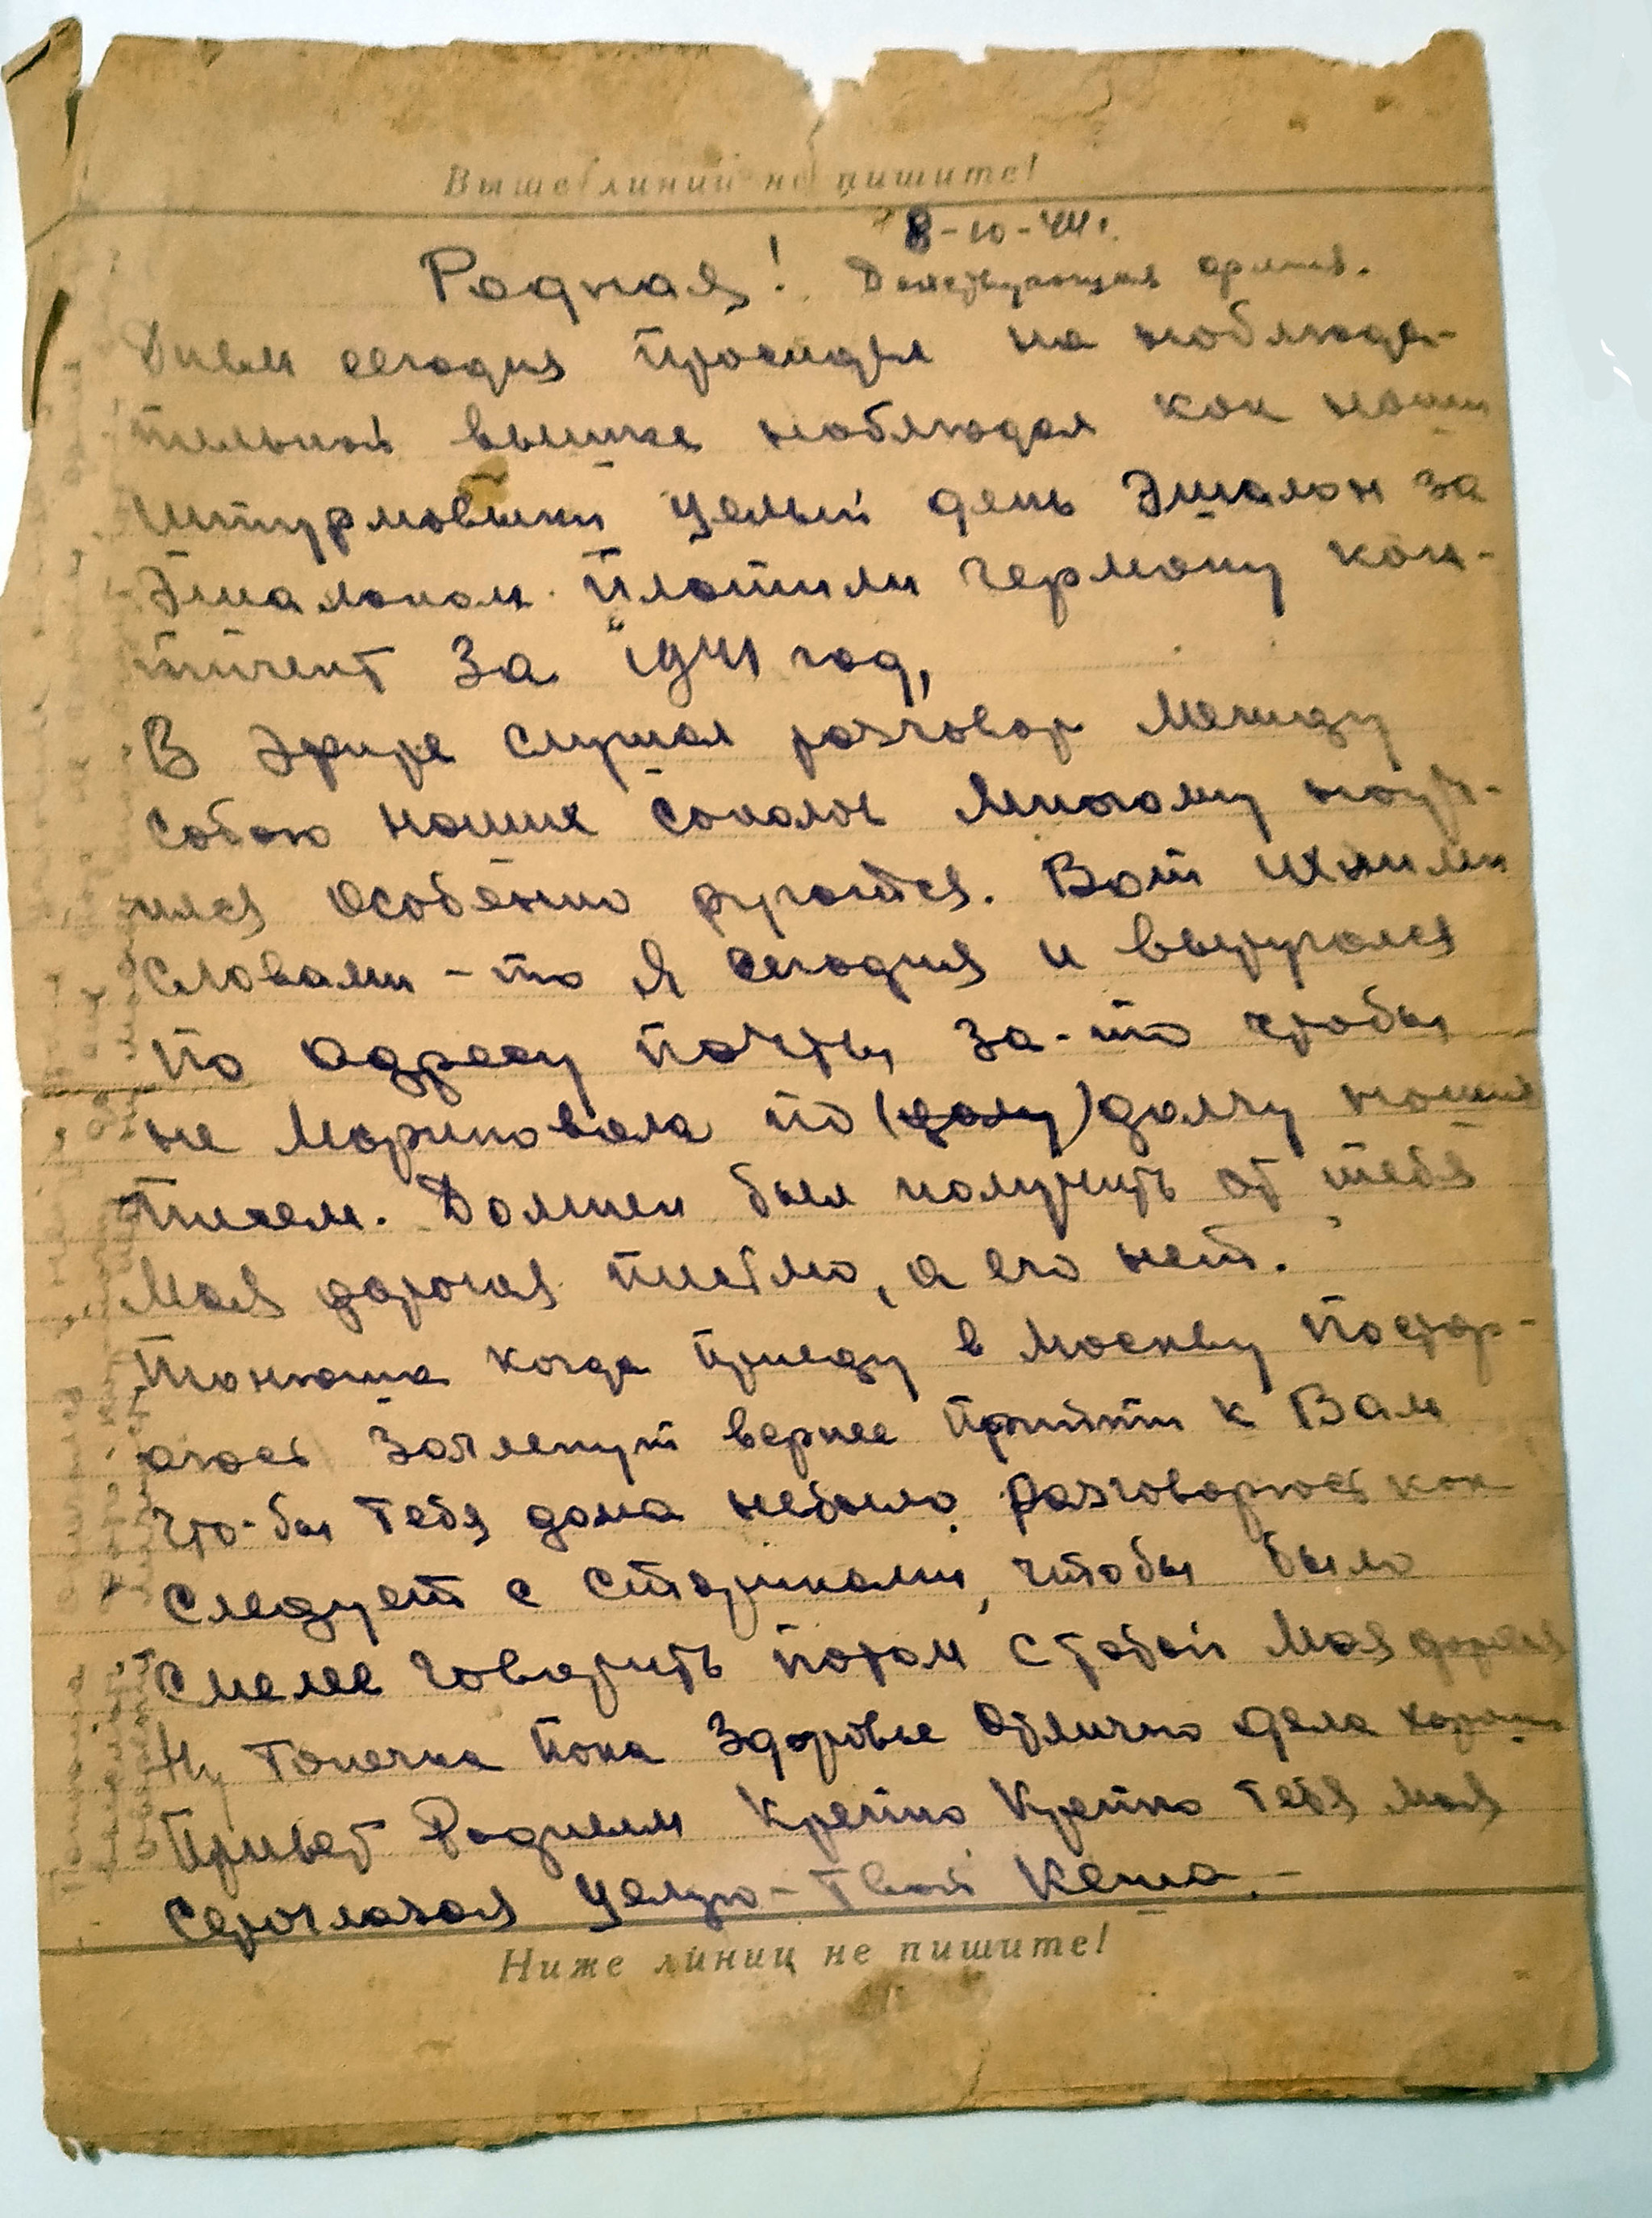 Выше линии не пишите!
8-10-44г.
Родная! Действующая армия.
Днем сегодня просидел на наблюда-
тельной вышке наблюдал как наши
штурмовики целый день Эшалон за
Эшалоном. Платили герману кон-
тигент за "1941 год,
В эфире слушал разговор между
собою наших соколов многому науч-
ился особенно ругатся. Вот ихними
словами-то я сегодня и выругался
по адресу почты, за-то чтобы
не мариновала по (долу) долгу наших
писем. Должен был получить от тебя
моя дорогая письмо, а его нет.
Танюша когда приеду в Москву постар-
аюсь вернее прийти к Вам
Что-бы тебя дома небыло. Разговорюсь как
следует с стариками, чтобы было
смелее говорить потом с тобой моя дорогая
Ну Тонечка пока здоровье отлично дела хорошо
Привет Родным Крепко Крепко тебя моя
сероглазая целую - твой Кеша. -
Ниже линии не пишите!